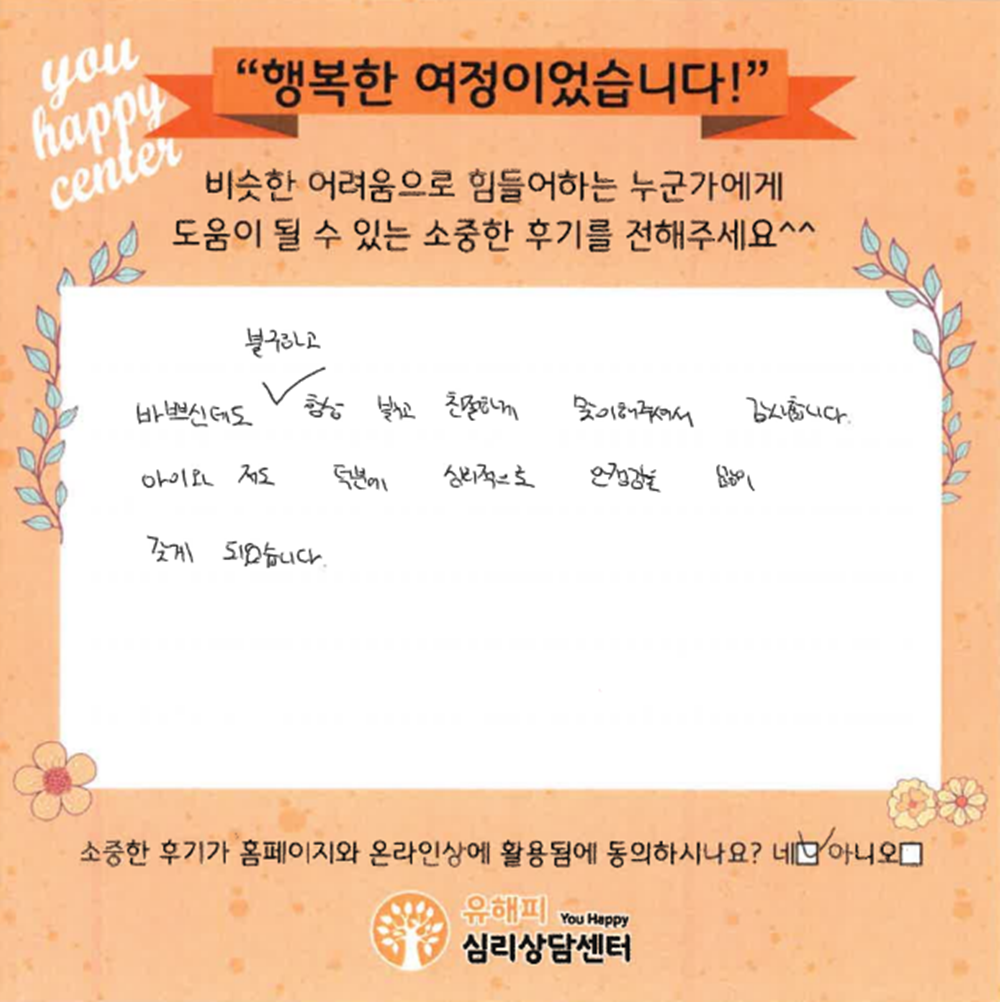 you
happy
center
“행복한 여정이었습니다!”
비슷한 어려움으로 힘들어하는 누군가에게
도움이 될 수 있는 소중한 후기를 전해주세요^^
불구하고
바쁘신데도 항상 밝고 친절하게 맞이해주셔서 감사합니다.
아이와 저도 덕분에 심리적으로 안정감을
갖게 되었습니다.
소중한 후기가 홈페이지와 온라인상에 활용됨에 동의하시나요? 네 아니오
유해피 You Happy
심리상담센터